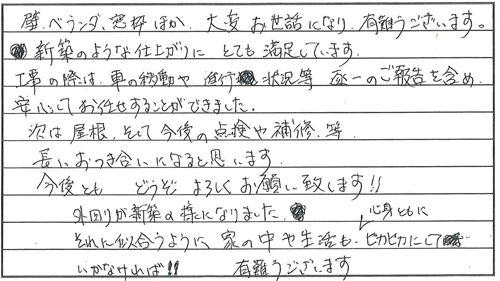 壁、ベランダ、窓枠ほか、大変お世話になり、有難うございます。
新築のような仕上がりに とても満足しています。
工事の際は、車の移動や 進行 状況等 逐一のご報告を含め、
安心してお任せすることができました。
次は屋根、そして今後の点検や補修、等
長いおつき合いになると思います。
今後とも どうぞ よろしくお願い致します!!
外回りが新築の様になりました。
心身ともに
それに似合うように、家の中や生活も、ピカピカにして
いかなければ!! 有難うございます